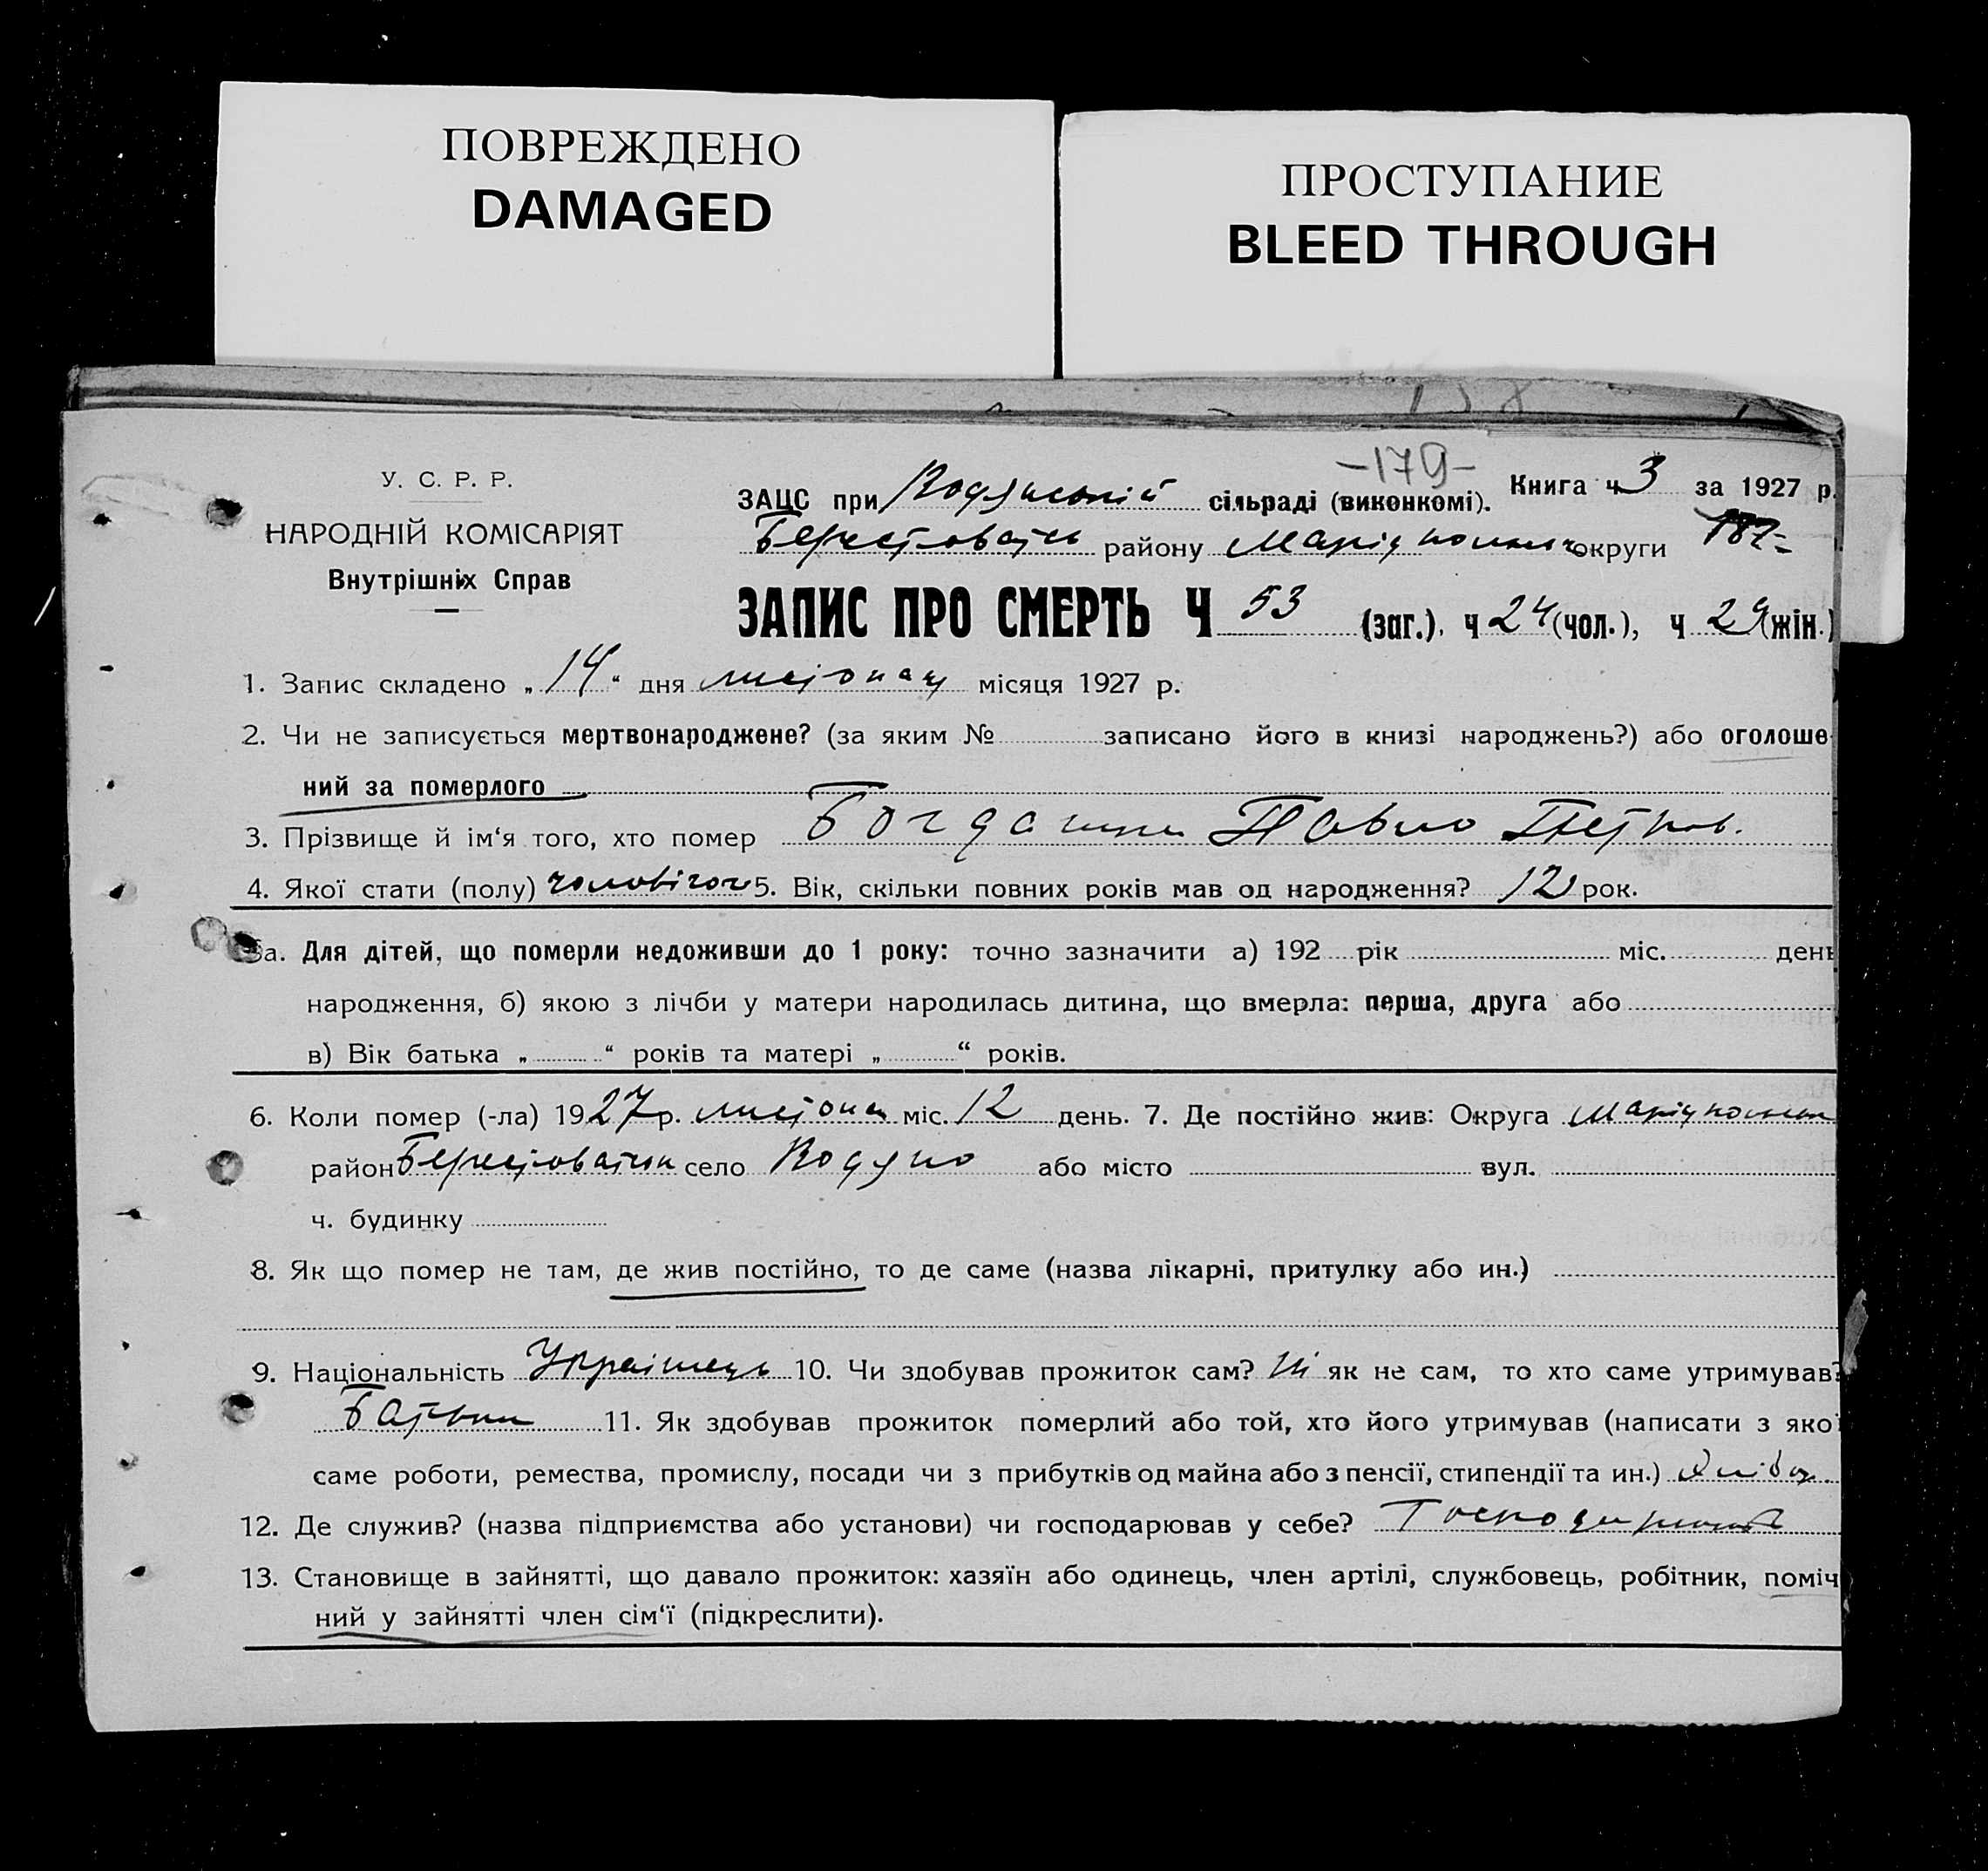 ПОВРЕЖДЕНО
DAMAGED
ПРОСТУПАНИЕ
BLEED THROUGH
158
-179-
У. С. Р. Р.
НАРОДНІЙ КОМІСАРІЯТ
Внутрішніх Справ
ЗАЦС при Водянській сільраді (виконкомі). Книга ч 3 за 1927 р.
Берестовацьк району Маріупольськ округи 187-
ЗАПИС ПРО СМЕРТЬ Ч 53 (заг.), ч 24 (чол.), ч 29 (жін.)
1. Запис складено „14“ дня листопад місяця 1927 р.
2. Чи не записується мертвонароджене? (за яким № записано його в книзі народжень?) або оголоше-
ний за померлого
3. Прізвище й ім‘я того, хто помер Павло Петров.
4. Якої стати (полу) чоловічої 5. Вік, скільки повних років мав од народження? 12 рок.
5а. Для дітей, що померли недоживши до 1 року: точно зазначити а) 192 рік міс. день
народження, б) якою з лічби у матери народилась дитина, що вмерла: перша, друга або
в) Вік батька „ “ років та матері „ “ років.
6. Коли помер (-ла) 1927 р. листопад міс. 12 день. 7. Де постійно жив: Округа Маріупольськ
район Берестовацьк село Водяно або місто вул.
ч. будинку
8. Як що помер не там, де жив постійно, то де саме (назва лікарні, притулку або ин.)
9. Національність Українець 10. Чи здобував прожиток сам? Ні як не сам, то хто саме утримував?
Батьки 11. Як здобував прожиток померлий або той, хто його утримував (написати з якої
саме роботи, ремества, промислу, посади чи з прибутків од майна або з пенсії, стипендії та ин.)
12. Де служив? (назва підприємства або установи) чи господарював у себе?
13. Становище в зайнятті, що давало прожиток: хазяїн або одинець, член артілі, службовець, робітник, поміч
ний у зайнятті член сім‘ї (підкреслити).